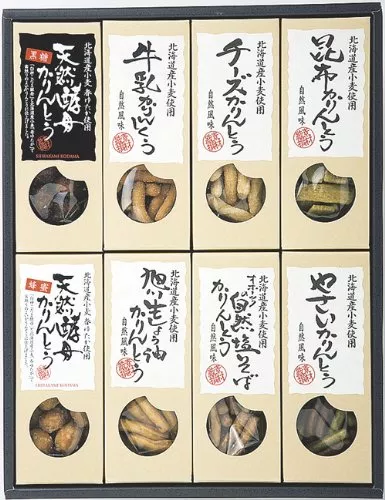 北海道産小麦 春ゆたか使用
黒糖
天然酵母
かりんとう
SHIRAKAMI KODAMA
北海道産小麦使用
牛乳かりんとう
自然風味
北海道産小麦使用
チーズかりんとう
自然風味
北海道産小麦使用
昆布かりんとう
自然風味
北海道産小麦 春ゆたか使用
蜂蜜
天然酵母
かりんとう
SHIRAKAMI KODAMA
北海道産小麦使用
旭川生しょうゆ
かりんとう
自然風味
北海道産小麦使用
オホーツクの自然塩そば
かりんとう
自然風味
北海道産小麦使用
やさいかりんとう
自然風味